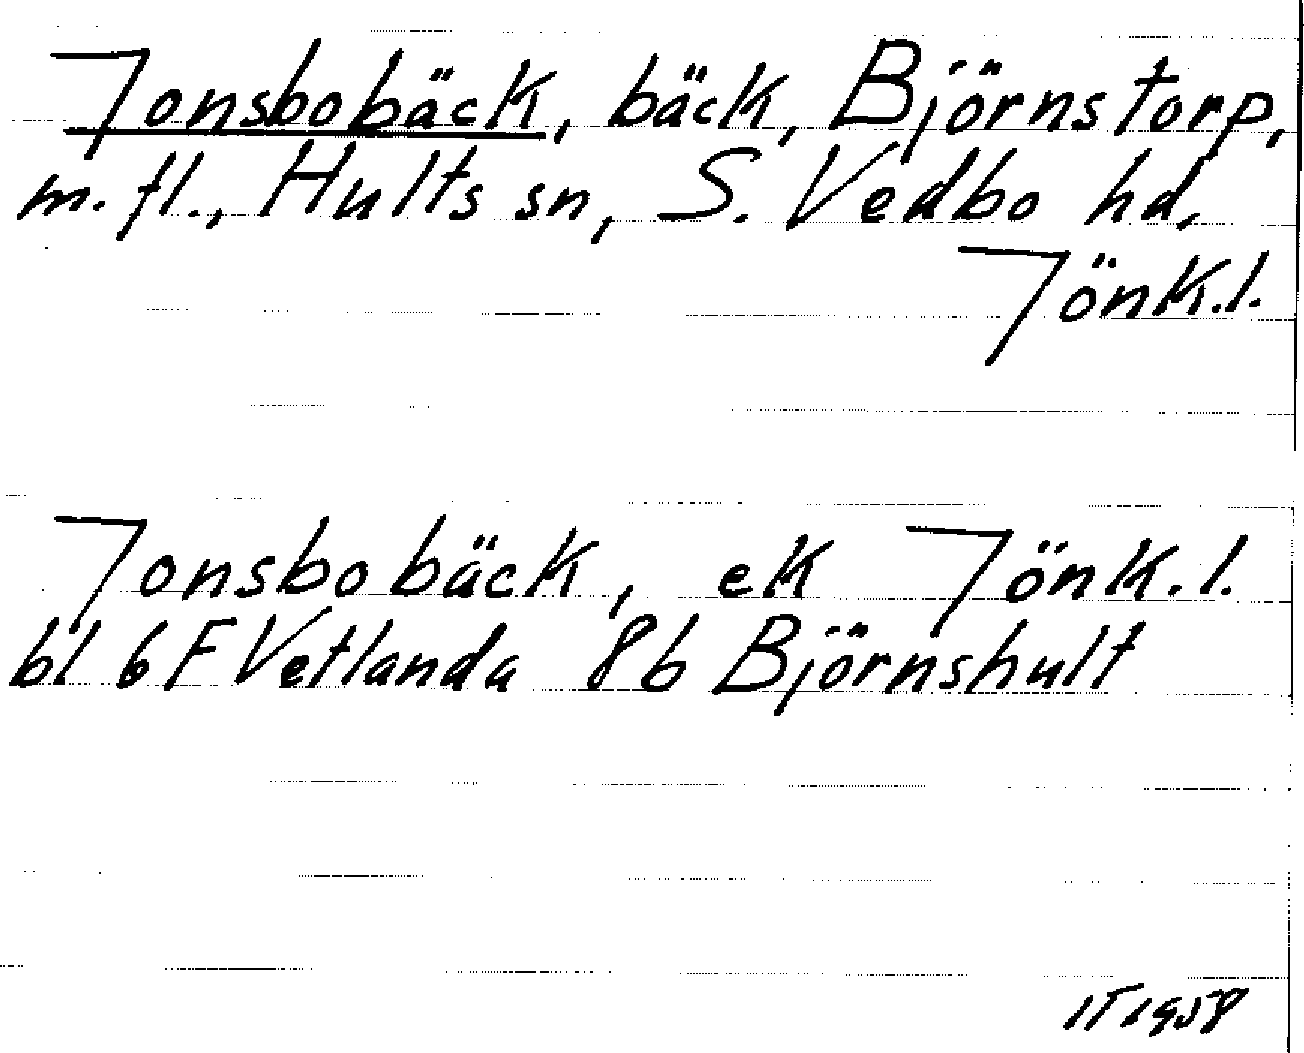 Jonsbobäck, bäck, Björnstorp,
m. fl., Hults sn, S. Vedbo hd,
Jönk.l.
Jonsbobäck, ek Jönk.l.
bl 6F Vetlanda 8b Björnshult
1958